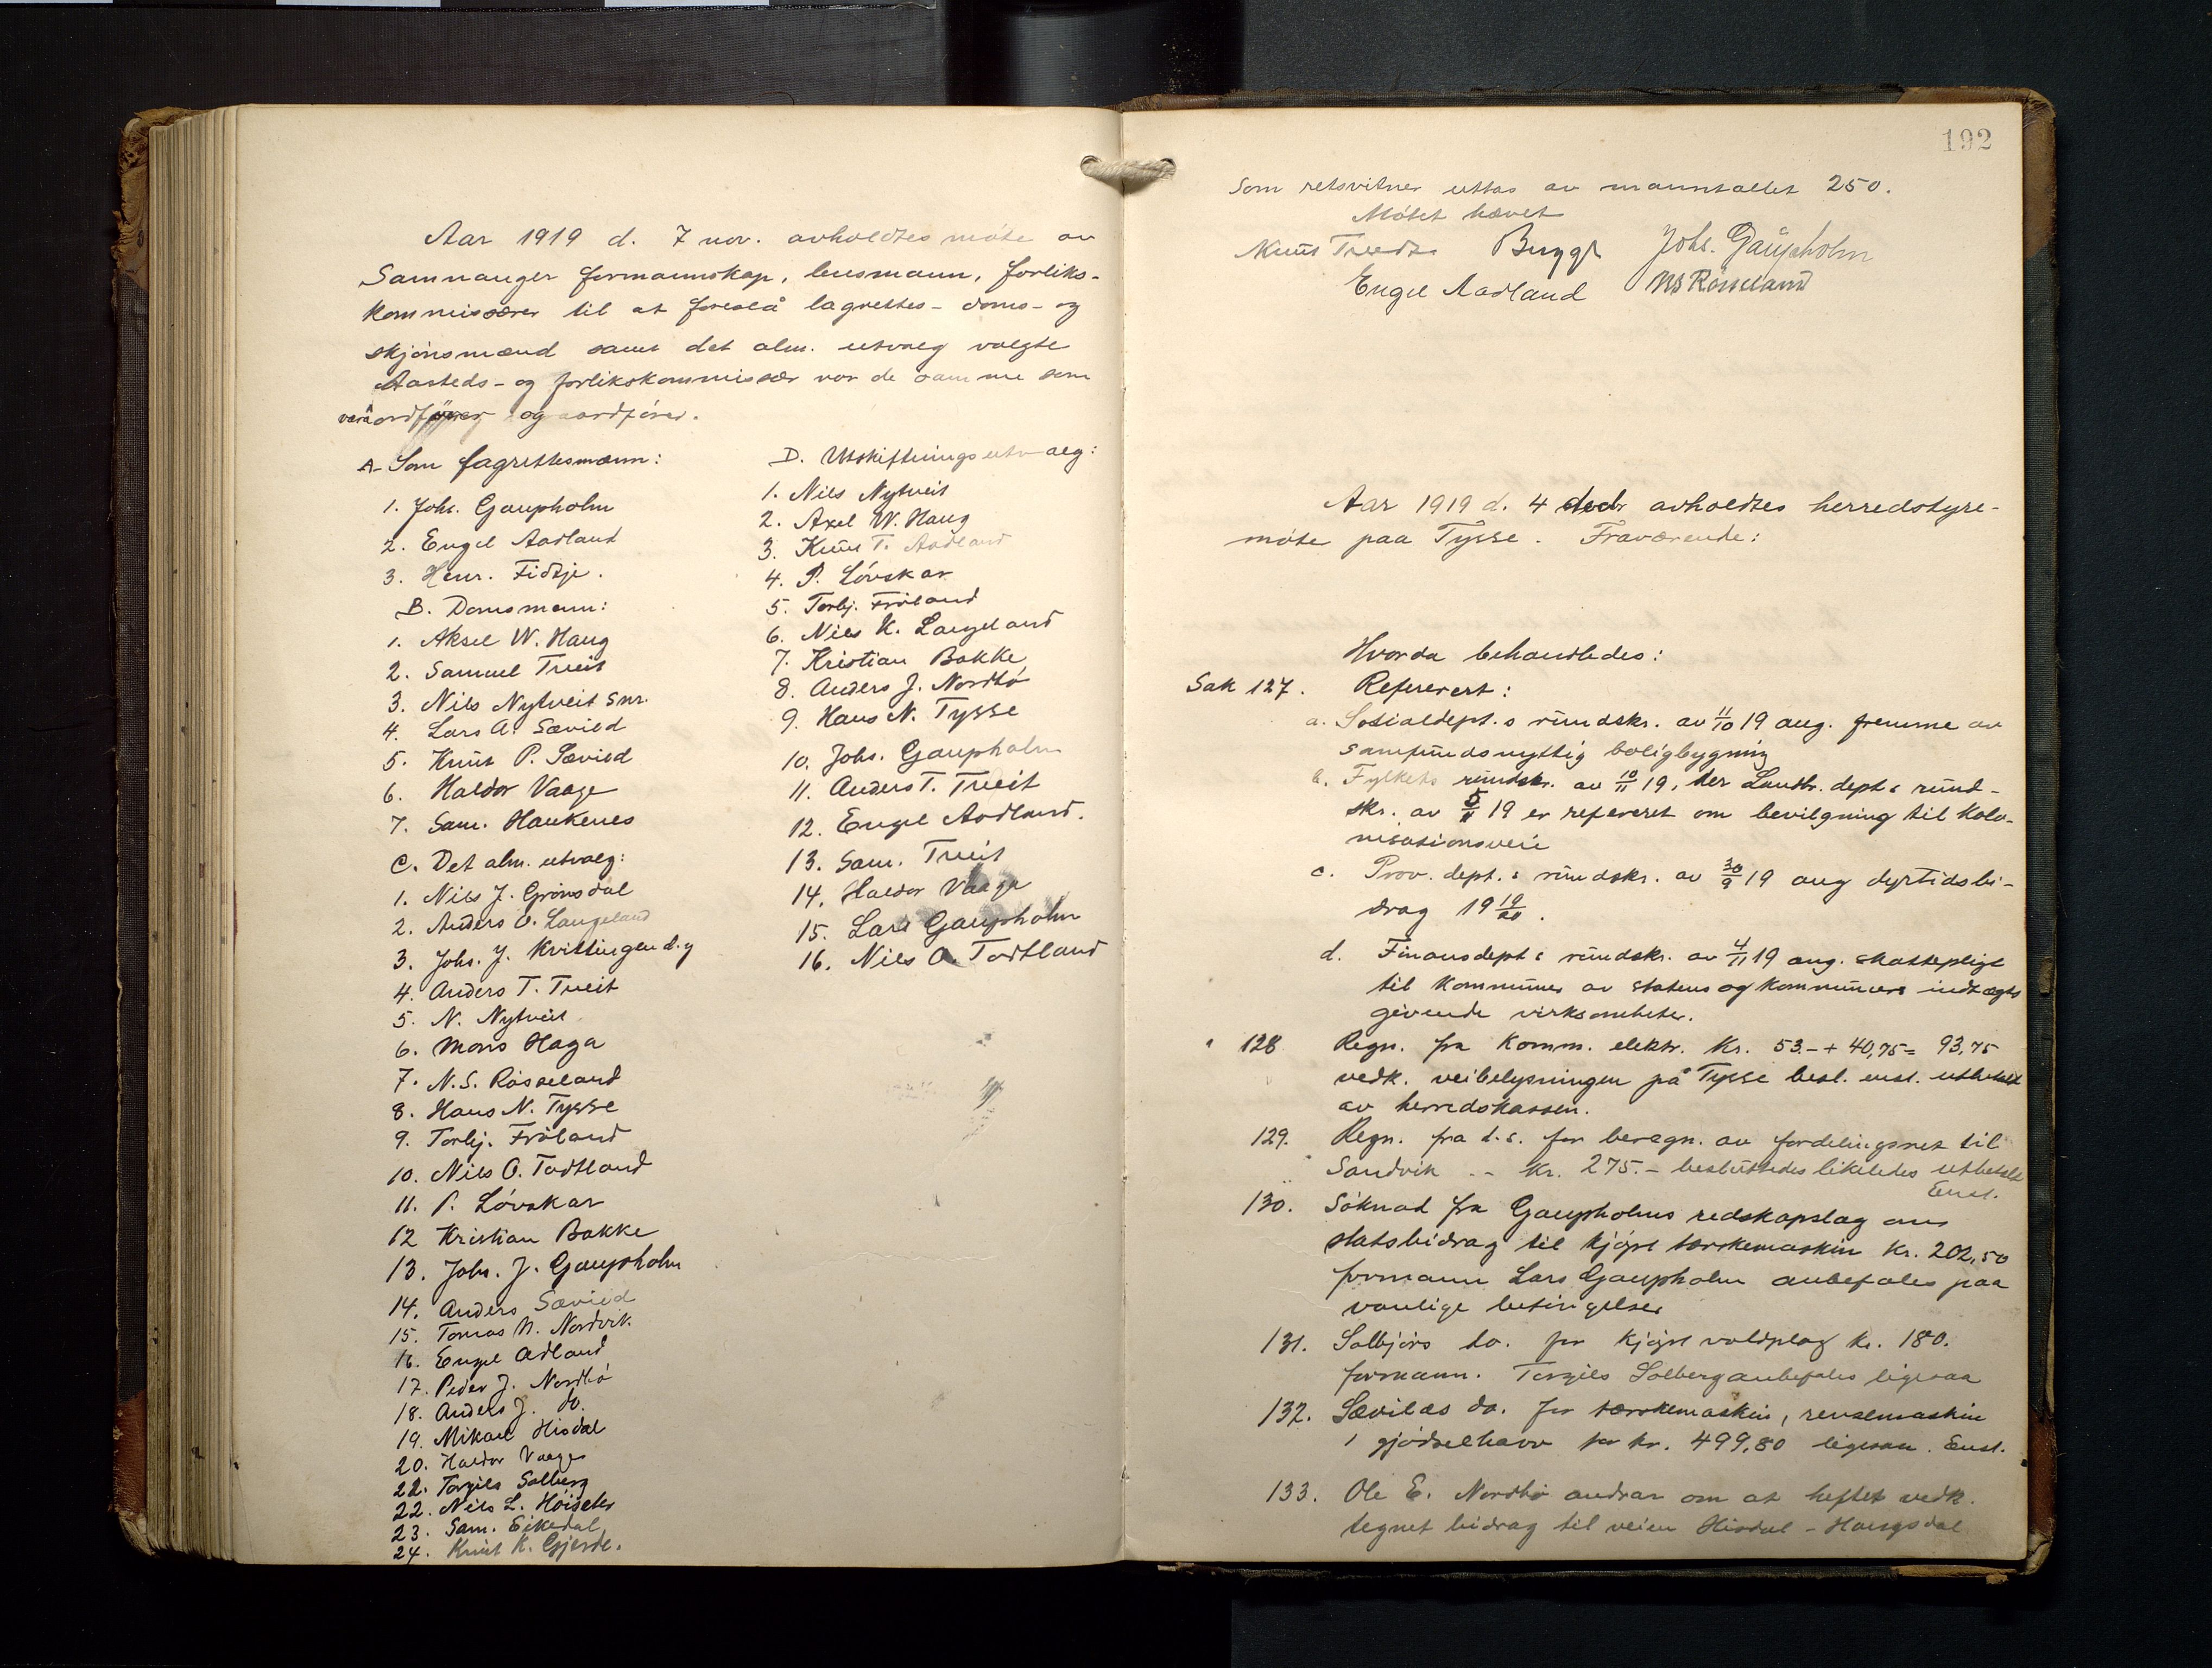 Aar 1919 d. 7 nov. avholdtes møte av
Samnanger formannskap, lensmann, forliks-
kommissærer til at foreslå lagrettes- doms- og
skjönsmænd samt det alm. utvalg valgte
Aasteds- og forlikskommissær var de samme som
varaordfører og ordfører.
A. Som lagrettesmænn:
1. Johs. Gaupholm
2. Engel Aadland
3. Henr. Tidtje.
B. Domsmenn:
1. Aksel W. Haug
2. Samuel Tveit
3. Nils Nytveit snr.
4. Lars A. Sævild
5. Knut P. Sævild
6. Haldor Vaage
7. Sam. Haukenes
C. Det alm. utvalg:
1. Nils J. Grønsdal
2. Anders O. Langeland
3. Johs. J. Kvittingen d.y
4. Anders T. Tveit
5. N. Nytveit
6. Mons Haga
7. N. S. Røsseland
8. Hans N. Tysse
9. Torbj. Frøland
10. Nils O. Todtland
11. P. Løvskar
12 Kristian Bakke
13. Johs. J. Gaupholm
14. Anders Sævild
15. Tomas N. Nordvik
16. Engel Adland
17. Peder J. Nordbø
18. Anders J. do.
19. Mikael Hisdal
20. Haldor Vaage
22. Torgils Solberg
22. Nils L. Høiseter
23. Sam. Eikedal
24. Knut K. Gjerde.
D. Utskiftningsutvalg:
1. Nils Nytveit
2. Axel W. Haug
3. Knut T. Aadland
4. P. Løvskar
5. Torbj. Frøland
6. Nils K. Langeland
7. Kristian Bakke
8. Anders J. Nordbø
9. Hans N. Tysse
10. Johs. Gaupholm
11. Anders T. Tveit
12. Engel Aadland.
13. Sam. Tveit
14. Haldor Vaage
15. Lars Gaupholm
16. Nils O. Todtland
192
Som retsvitner uttas av manntallet 250.
Møtet hævet
Knut Tveit Brygt Johs. Gaupholm
Engel Aadland NS Røsseland
Aar 1919 d. 4 decbr avholdtes herredstyre-
møte paa Tysse. Fraværende:
Hvorda behandledes:
Sak 127. Referert:
a. Sosialdept.s rundskr. av 11/10 19 ang. fremme av
samfundsnyttig boligbygning
b. Fylkets rundskr. av 10/11 19, der Landbr. dept.s rund-
skr. av 5/11 19 er refereret om bevilgning til kolo-
nisationsveie
c. Prov. dept.s rundskr. av 30/9 19 ang dyrtidsbi-
drag 19 19/20.
d. Finansdept.s rundskr. av 4/11 19 ang. skattepligt
til kommuner av statens og kommuners indtægts
givende virksomheter.
128 Regn. fra Komm. elektr. Kr. 53.- + 40,75 = 93,75
vedk. veibelysningen på Tysse besl. enst. utbetalt
av herredskassen.
129. Regn. fra d.s. for beregn. av fordelingsnet til
Sandvik -- Kr. 275.- besluttedes likeledes utbetalt
Enst.
130. Søknad fra Gaupholms redskapslag om
statsbidrag til kjøpt tærskemaskin kr. 202,50
formann Lars Gaupholm anbefales paa
vanlige betingelser
131. Solbjørs do. for kjøpt voldplog kr. 180.
formann. Torgils Solberg anbefales ligesaa
132. Sævilds do. for tærskemaskin, rensemaskin
1 gjødselharv for kr. 499,80 ligesaa. Enst.
133. Ole E. Nordbø andrar om at heftet vedk.
tegnet bidrag til veien Hisdal - Haugsdal